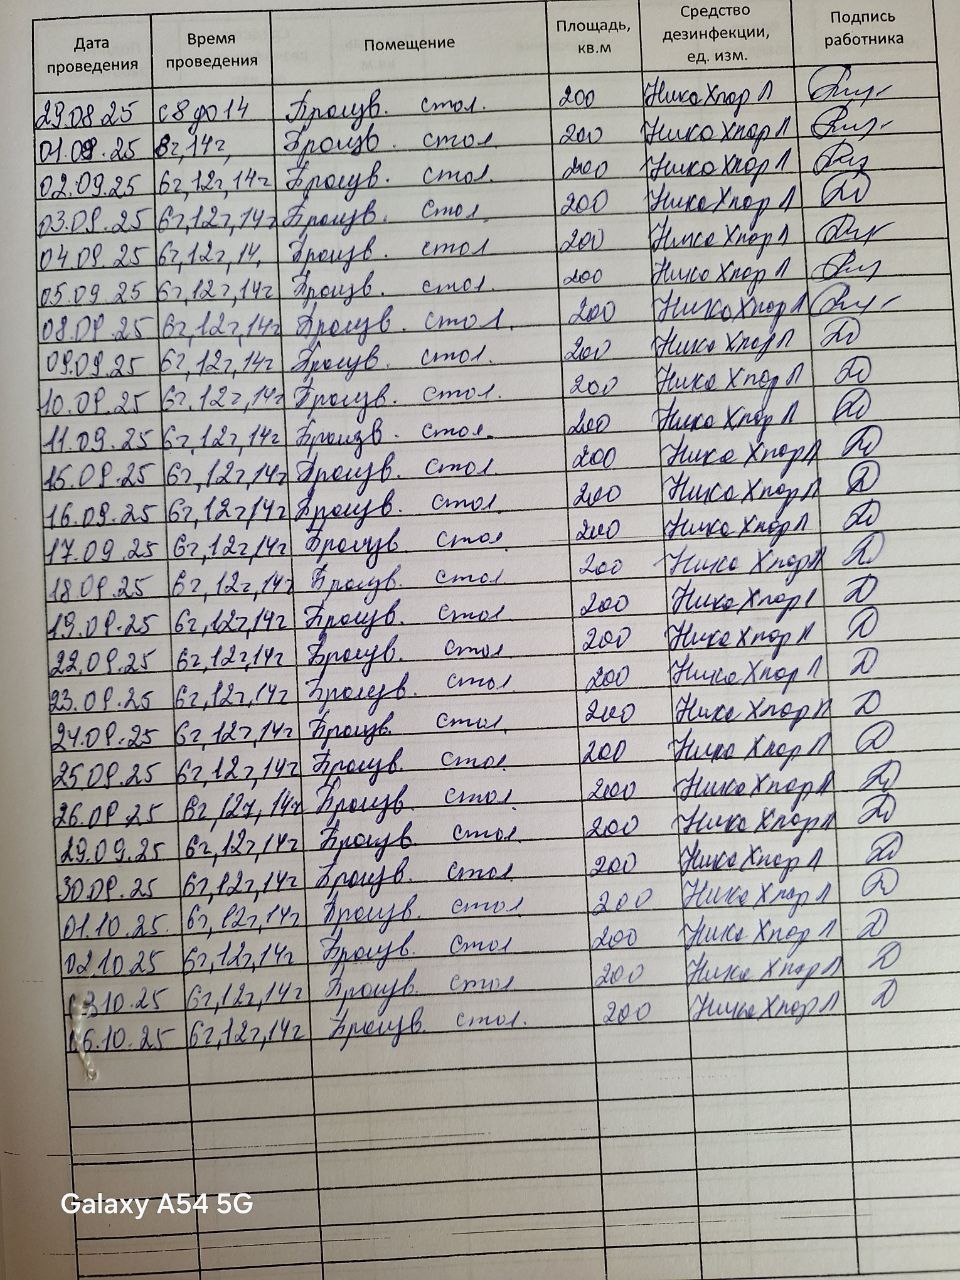 Дата проведения | Время проведения | Помещение | Площадь, кв.м | Средство дезинфекции, ед. изм. | Подпись работника
29.08.25 | с 8 до 14 | Произв. стол. | 200 | Ника Хлор Л
01.09.25 | 8ч,14ч, | Произв. стол. | 200 | Ника Хлор Л
02.09.25 | 6ч,12ч,14ч | Произв. стол. | 200 | Ника Хлор Л
03.09.25 | 6ч,12ч,14ч | Произв. стол. | 200 | Ника Хлор Л
04.09.25 | 6ч,12ч,14, | Произв. стол | 200 | Ника Хлор Л
05.09.25 | 6ч,12ч,14ч | Произв. стол. | 200 | Ника Хлор Л
08.09.25 | 6ч,12ч,14ч | Произв. стол. | 200 | Ника Хлор Л
09.09.25 | 6ч,12ч,14ч | Произв. стол. | 200 | Ника Хлор Л
10.09.25 | 6ч.12ч,14ч | Произв. стол. | 200 | Ника Хлор Л
11.09.25 | 6ч,12ч,14ч | Произв. стол. | 200 | Ника Хлор Л
15.09.25 | 6ч,12ч,14ч | Произв. стол. | 200 | Ника Хлор Л
16.09.25 | 6ч,12ч,14ч | Произв. стол | 200 | Ника Хлор Л
17.09.25 | 6ч,12ч,14ч | Произв. стол | 200 | Ника Хлор Л
18.09.25 | 6ч,12ч,14ч | Произв. стол | 200 | Ника Хлор Л
19.09.25 | 6ч,12ч,14ч | Произв. стол | 200 | Ника Хлор Л
22.09.25 | 6ч,12ч,14ч | Произв. стол | 200 | Ника Хлор Л
23.09.25 | 6ч,12ч,14ч | Произв. стол | 200 | Ника Хлор Л
24.09.25 | 6ч,12ч,14ч | Произв. стол. | 200 | Ника Хлор Л
25.09.25 | 6ч,12ч,14ч | Произв. стол | 200 | Ника Хлор Л
26.09.25 | 6ч,12ч,14ч | Произв. стол. | 200 | Ника Хлор Л
29.09.25 | 6ч,12ч,14ч | Произв. стол. | 200 | Ника Хлор Л
30.09.25 | 6ч,12ч,14ч | Произв. стол. | 200 | Ника Хлор Л
01.10.25 | 6ч,12ч,14ч | Произв. стол | 200 | Ника Хлор Л
02.10.25 | 6ч,12ч,14ч | Произв. стол | 200 | Ника Хлор Л
03.10.25 | 6ч,12ч,14ч | Произв. стол | 200 | Ника Хлор Л
06.10.25 | 6ч,12ч,14ч | Произв. стол. | 200 | Ника Хлор Л
Galaxy A54 5G